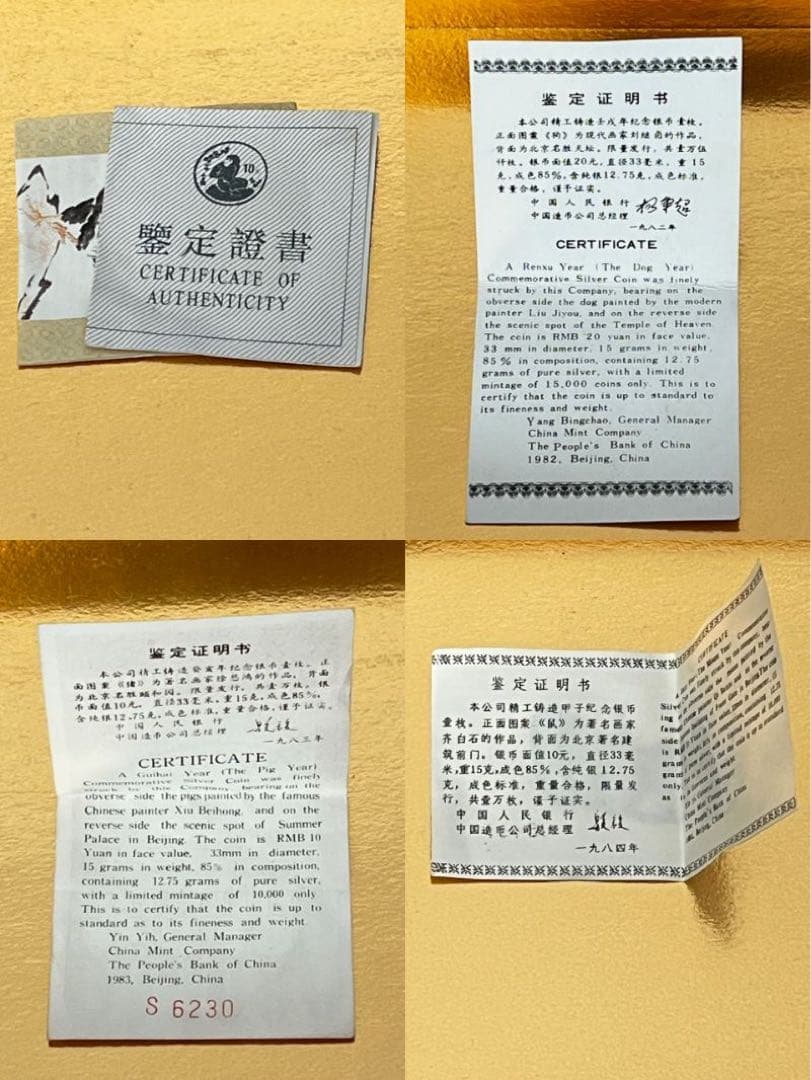 10
鑒定證書
CERTIFICATE OF
AUTHENTICITY
鉴定证明书
本公司精工铸造壬戌年纪念银币壹枚。
正面图案《狗》为现代画家刘继卣的作品,
背面为北京名胜天坛。限量发行,共壹万伍
仟枚。银币面值20元,直径33毫米,重15
克,成色85%,含纯银12.75克,成色标准,
重量合格,谨予证实。
中国人民银行
中国造币公司总经理
一九八二年
CERTIFICATE
A Renxu Year (The Dog Year)
Commemorative Silver Coin was finely
struck by this Company, bearing on the
obverse side the dog painted by the modern
painter Liu Jiyou, and on the reverse side
the scenic spot of the Temple of Heaven.
The coin is RMB 20 yuan in face value,
33 mm in diameter, 15 grams in weight,
85% in composition, containing 12.75
grams of pure silver, with a limited
mintage of 15,000 coins only. This is to
certify that the coin is up to standard to
its fineness and weight.
Yang Bingchao, General Manager
China Mint Company
The People's Bank of China
1982, Beijing, China
鉴定证明书
本公司精工铸造癸亥年纪念银币壹枚。正
面图案《猪》为著名画家徐悲鸿的作品,背面
为北京名胜颐和园。限量发行,共壹万枚。银
币面值10元,直径33毫米,重15克,成色85%,
含纯银12.75克,成色标准,重量合格,谨予证实。
中国人民银行
中国造币公司总经理
一九八三年
CERTIFICATE
A Guihai Year (The Pig Year)
Commemorative Silver Coin was finely
struck by this Company, bearing on the
obverse side the pigs painted by the famous
Chinese painter Xiu Beihong, and on the
reverse side the scenic spot of Summer
Palace in Beijing. The coin is RMB 10
Yuan in face value, 33mm in diameter,
15 grams in weight, 85% in composition,
containing 12.75 grams of pure silver,
with a limited mintage of 10,000 only
This is to certify that the coin is up to
standard as to its fineness and weight.
Yin Yih, General Manager
China Mint Company
The People's Bank of China
1983, Beijing, China
S 6230
鉴定证明书
本公司精工铸造甲子纪念银币
壹枚。正面图案《鼠》为著名画家
齐白石的作品,背面为北京著名建
筑前门。银币面值10元,直径33毫
米,重15克,成色85%,含纯银12.75
克,成色标准,重量合格,限量发
行,共壹万枚,谨予证实。
中国人民银行
中国造币公司总经理
一九八四年
CERTIFICATE
General Manager
China Mint Company
The People's Bank of China
Beijing, China